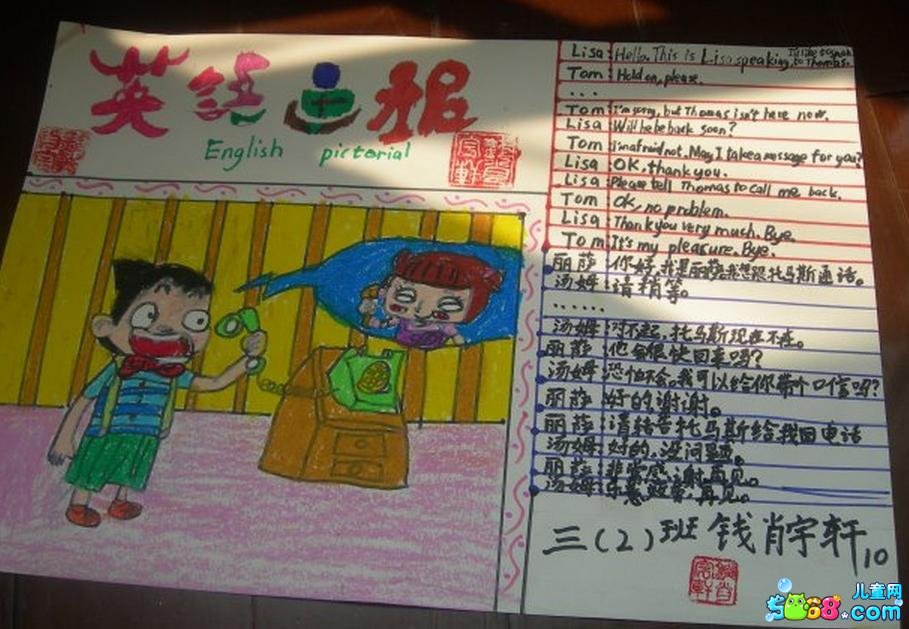 英語画报
English pictorial
Lisa: Hello, This is Lisa speaking, I'd like to speak to Thomas.
Tom: Hold on, please.
...
Tom: I'm sorry, but Thomas isn't here now.
Lisa: Will he be back soon?
Tom: I'm afraid not. May I take a message for you?
Lisa: OK, thank you.
Lisa: Please tell Thomas to call me back.
Tom: OK, no problem.
Lisa: Thank you very much. Bye.
Tom: It's my pleasure. Bye.
丽萨:你好,我是丽萨,我想跟托马斯通话。
汤姆:请稍等。
......
汤姆:对不起,托马斯现在不在。
丽萨:他会很快回来吗?
汤姆:恐怕不会,我可以给你带个口信吗?
丽萨:好的,谢谢。
丽萨:请转告托马斯给我回电话
汤姆:好的,没问题。
丽萨:非常感谢,再见。
汤姆:乐意效劳,再见。
三(2)班 钱肖宇轩 10
儿童网
5068.com